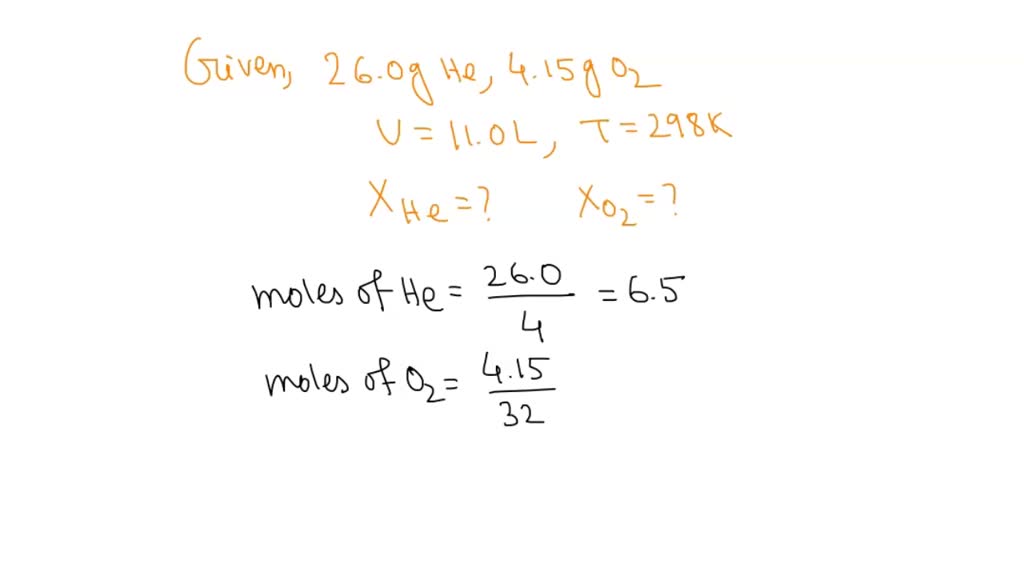 Given, 26.0g He, 4.15g O₂
V = 11.0L, T = 298K
X_He = ? X_O₂ = ?
moles of He = 26.0/4 = 6.5
moles of O₂ = 4.15/32